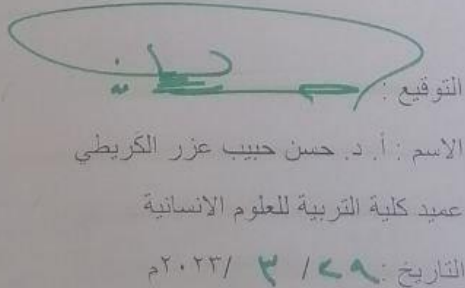 التوقيع :
الاسم : أ. د. حسن حبيب عزر الكريطي
عميد كلية التربية للعلوم الانسانية
التاريخ : ٢٩ / ٣ / ٢٠٢٣م